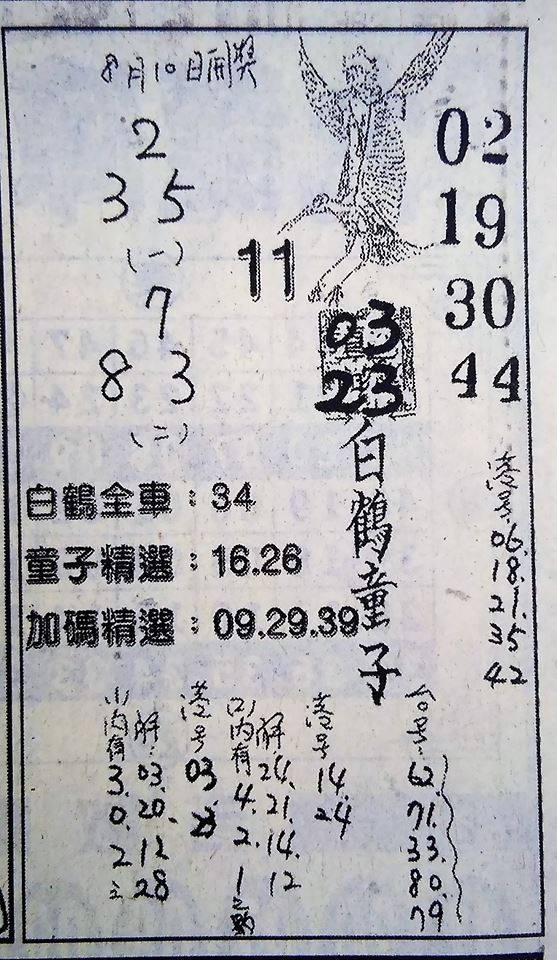 8月10日開獎
2
3 5
(一)
7
8 3
(二)
11
02
19
30
44
03
23
白鶴童子
白鶴全車：34
童子精選：16.26
加碼精選：09.29.39
港号
06.
18.
21.
35
42
(1)内有
3.
0.
2
解:
03.
20.
12
28
港号
03
23
(2)内有
4.
2.
1
解
24.
21.
14.
12
港号
14.
24
62.
71.
33.
80.
79